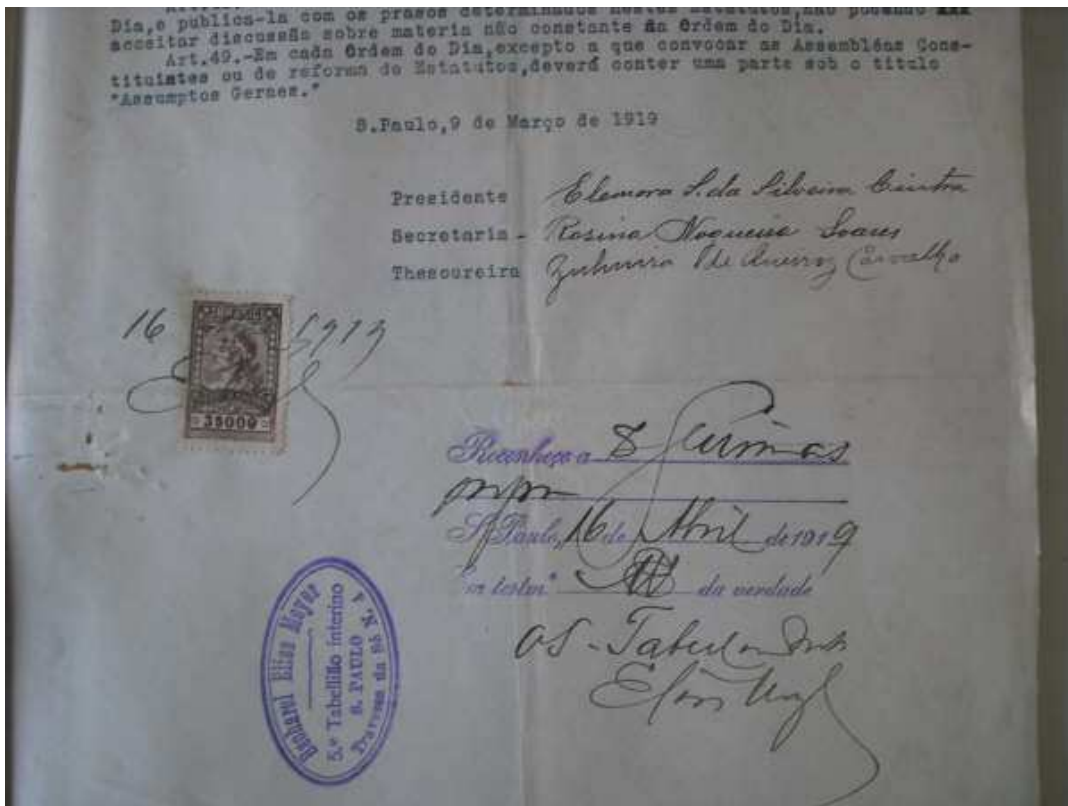 Dia,e publica-la com os prasos determinados nestes Estatutos,não podendo xxx
acceitar discussão sobre materia não constante da Ordem do Dia.
Art.49.-Em cada Ordem do Dia,excepto a que convocar as Assembléas Cons-
tituintes ou de reforma de Estatutos,deverá conter uma parte sob o titulo
"Assumptos Geraes."
S.Paulo,9 de Março de 1919
Presidente Eleonora S. da Silveira Cintra
Secretaria - Rosina Nogueira Soares
Thesoureira de Queiroz Carvalho
16 1919
3$000
Reconheço a 8 firmas
S. Paulo, 16 de Abril de 1919
Em testm.º da verdade
Bacharel Elias Mayer
5.º Tabellião interino
S. PAULO
Travessa da Sé N.